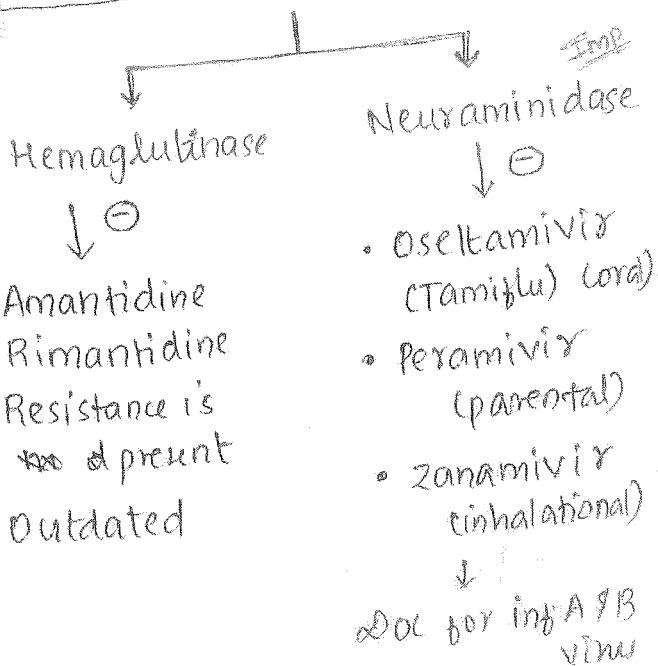 Imp
Hemaglutinase
⊖
Amantidine
Rimantidine
Resistance is
present
Outdated
Neuraminidase
⊖
• Oseltamivir
(Tamiflu) (oral)
• Peramivir
(parental)
• Zanamivir
(inhalational)
DOC for inf A & B
viru